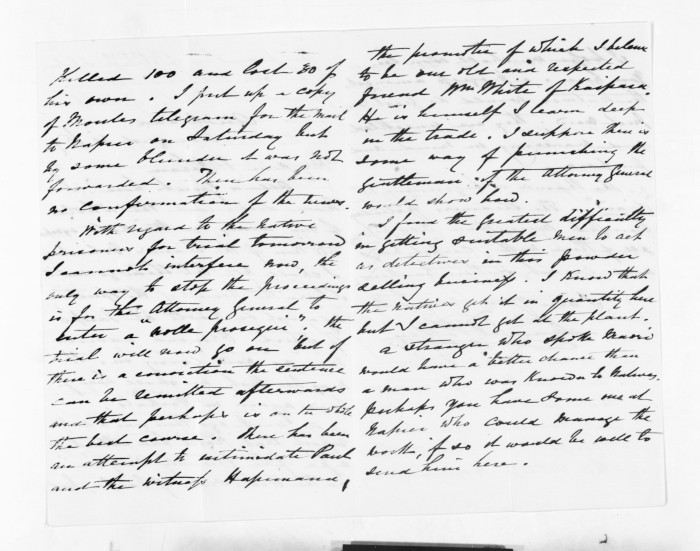 Killed 100 and lost 30 of
his own. I put up a copy
of Moules telegram for the mail
to Napier on Saturday but
by some blunder it was not
forwarded. There has been
no confirmation of the news.
With regard to the native
prisoners for trial tomorrow
I cannot interfere now, the
only way to stop the proceedings
is for the Attorney General to
enter a "nolle prosequi". The
trial will now go on but if
there is a conviction the sentence
can be remitted afterwards
and that perhaps is on the whole
the best course. There has been
an attempt to intimidate Paul
and the witness Hapimana,
the promoter of which I believe
to be our old and respected
friend Wm White of Kaipara.
He is himself I learn deep
in the trade. I suppose there is
some way of punishing the
gentleman if the Attorney General
would show how.
I find the greatest difficulty
in getting suitable men to act
as detectives in this powder
selling business. I know that
the natives get it in quantity here
but I cannot get at the plant.
A stranger who spoke Maori
would have a better chance than
a man who was known to Natives.
Perhaps you have some one at
Napier who could manage the
work, if so it would be well to
send him here.